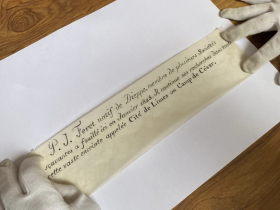 P. J. Feret natif de Dieppe, membre de plusieurs Sociétés
savantes a fouillé ici en Janvier 1825. Il continue ses recherches dans
cette vaste enceinte appelée Cité de Limes ou Camp de César.